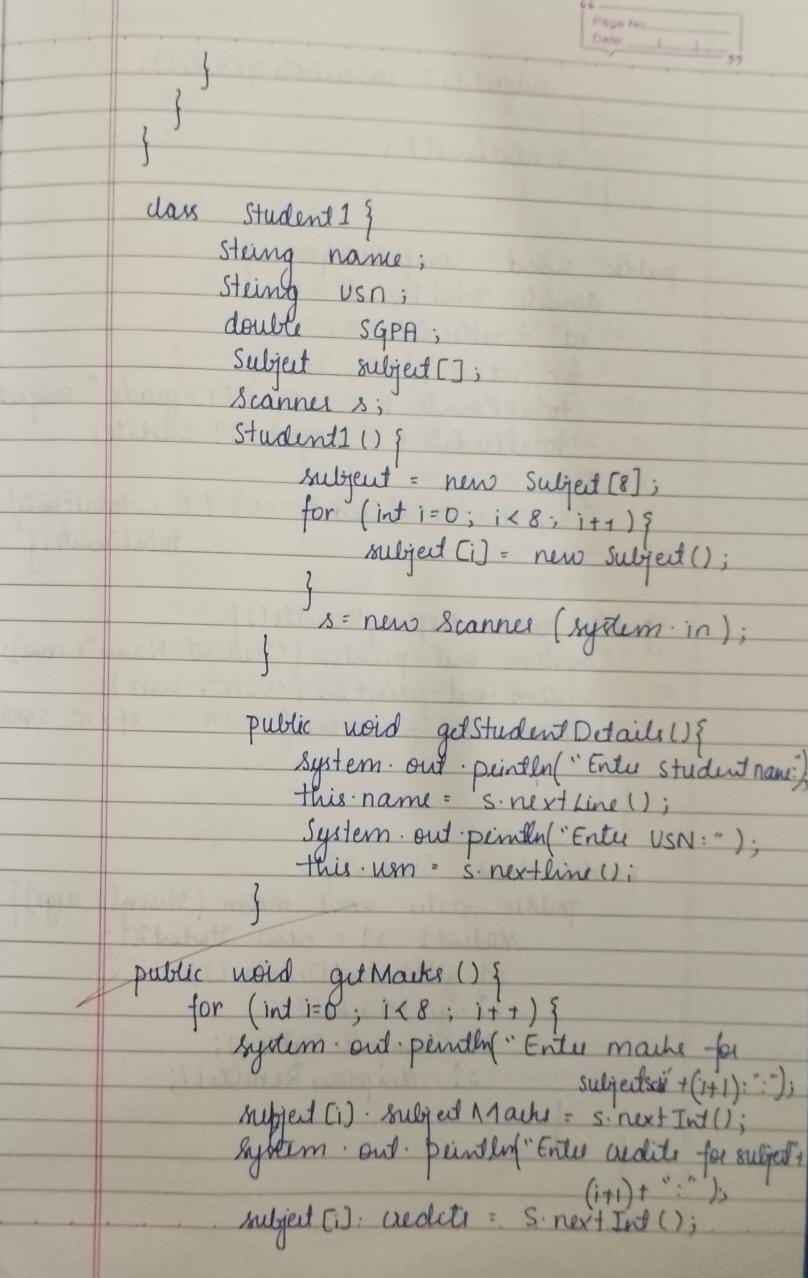 Page No.
Date
}
}
}
class Student1 {
String name ;
String usn ;
double SGPA ;
Subject subject [ ] ;
Scanner s ;
Student1 () {
subject = new Subject [8] ;
for (int i=0 ; i<8 ; i++) {
subject [i] = new Subject () ;
}
s = new Scanner (System.in) ;
}
public void getStudentDetails () {
System.out.println("Enter student name:")
this.name = s.nextLine () ;
System.out.println("Enter USN:" ) ;
this.usn = s.nextline () ;
}
public void getMarks () {
for (int i=0 ; i<8 ; i++) {
System.out.println("Enter marks for
+(i+1):":");
subject [i].subjectMarks = s.nextInt () ;
System.out.println("Enter credits for subject"+
(i+1)+":");
subject [i].credits = s.nextInt () ;